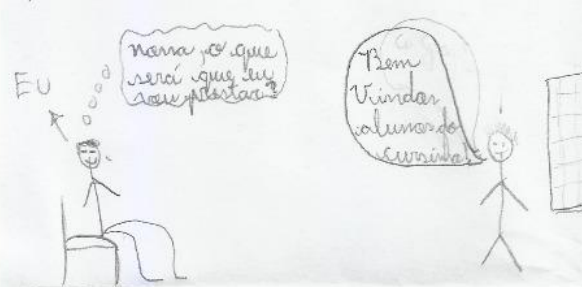 EU
nossa, o que
será que eu
vou prestar?
Bem
Vindos
alunos do
cursinho